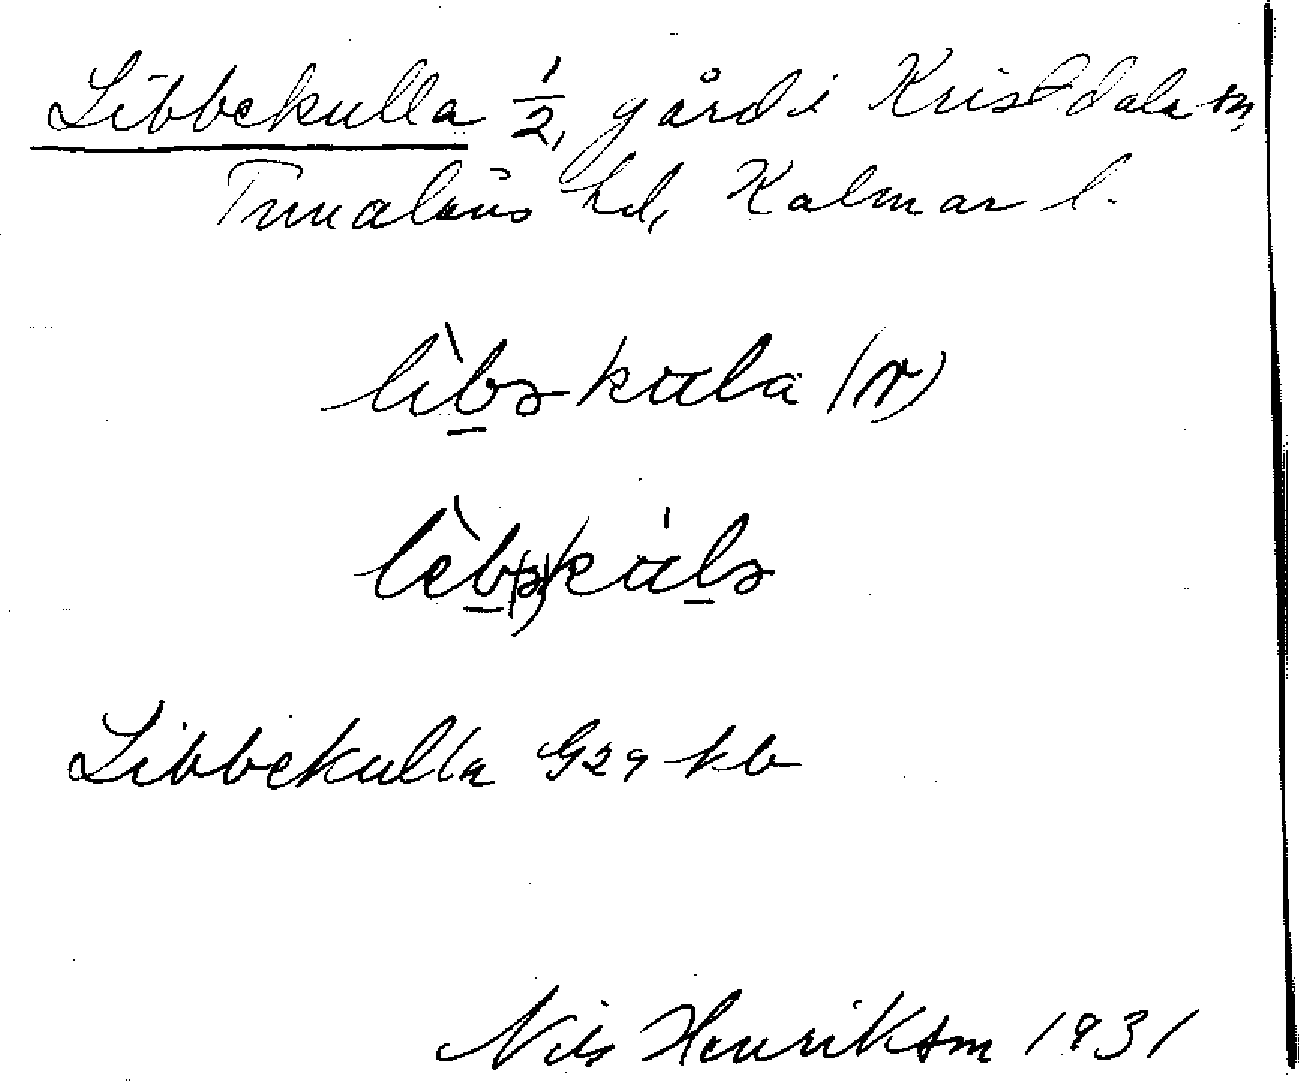 Libbekulla 1/2, gård i Kristdala sn,
Tunaläns hd, Kalmar l.
lìbəkula (r)
lèbəkúlə
Libbekulla G29 kb
Nils Henrikson 1931